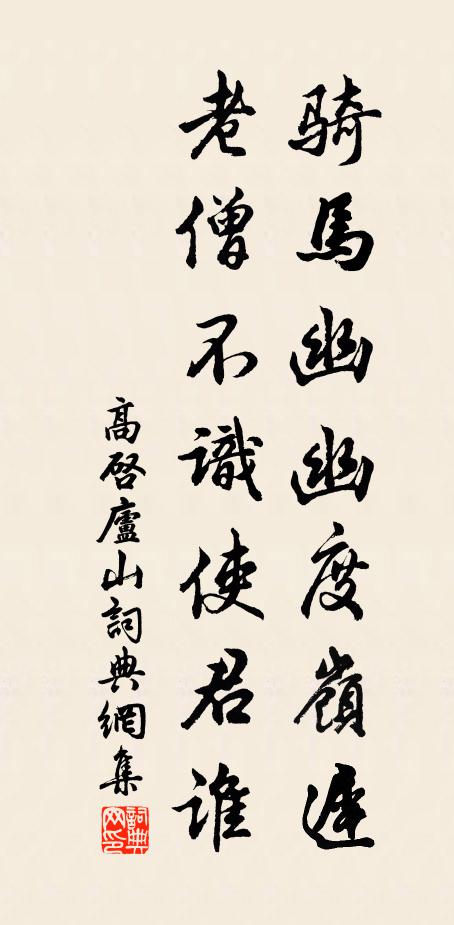 騎馬幽幽度嶺遲
老僧不識使君誰
高啓廬山詞典網集
詞典網印